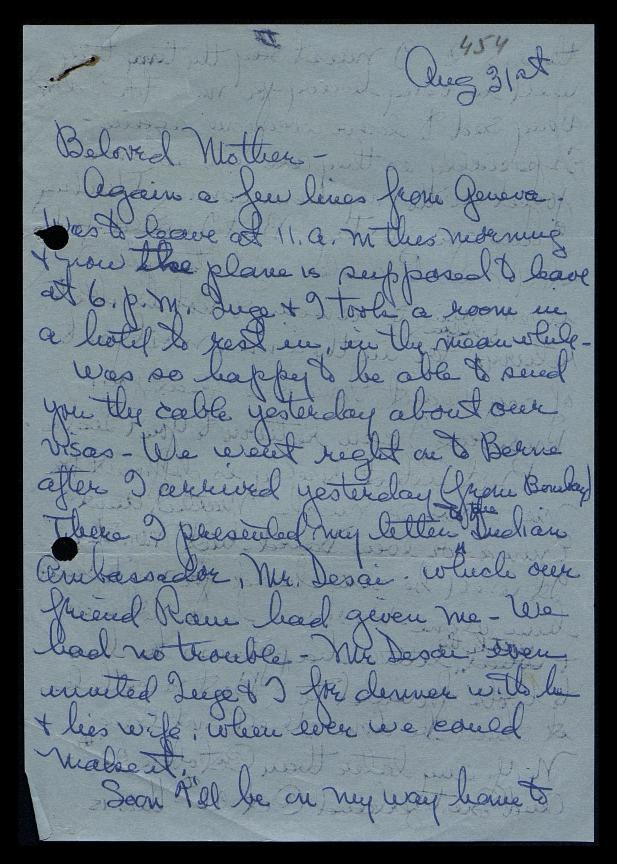 454
Aug 31st
Beloved Mother -
Again a few lines from Geneva.
Was to leave at 11. a. m this morning
& now the plane is supposed to leave
at 6. p. m. Inge & I took a room in
a hotel to rest in, in the meanwhile -
Was so happy to be able to send
you the cable yesterday about our
visas - We went right on to Berne
after I arrived yesterday (from Bombay)
There I presented my letter to the Indian
Ambassador, Mr. Desai. which our
friend Ram had given me - We
had no trouble - Mr Desai even
invited Inge & I for dinner with he
& his wife, when ever we could
make it.
Soon I'll be on my way home to